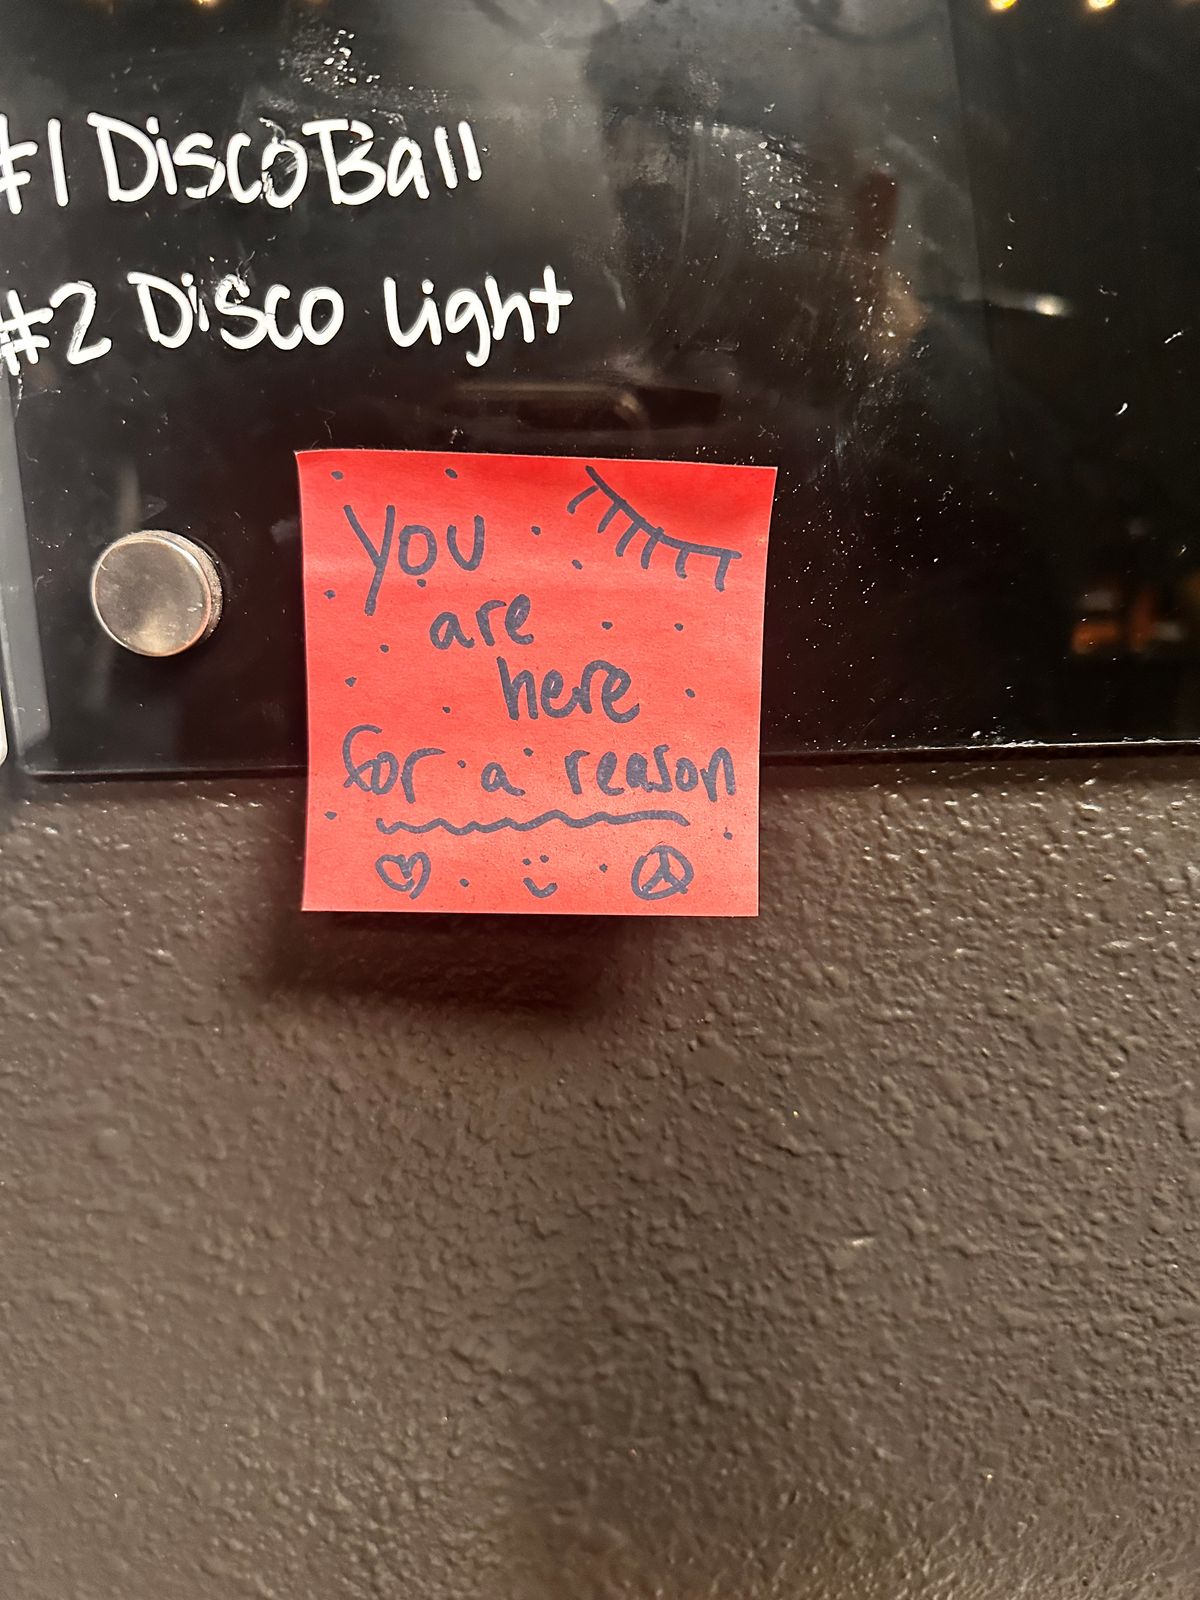 #1 Disco Ball
#2 Disco Light
You
are
here
for a reason